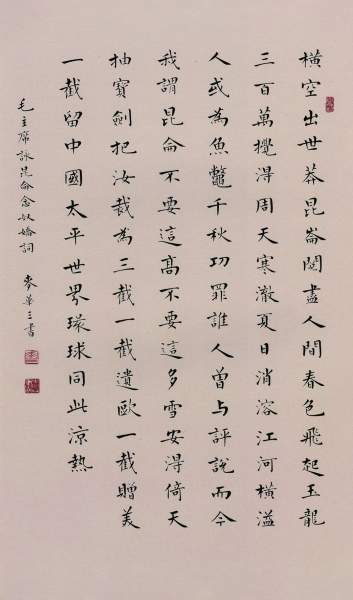 橫空出世莽昆崙閱盡人間春色飛起玉龍
三百萬攪得周天寒澈夏日消溶江河橫溢
人或為魚鼈千秋功罪誰人曾与評說而今
我謂昆侖不要這高不要這多雪安得倚天
抽寶劍把汝裁為三截一截遺歐一截贈美
一截留中國太平世界環球同此涼熱
毛主席詠昆侖念奴嬌詞 麥華三書